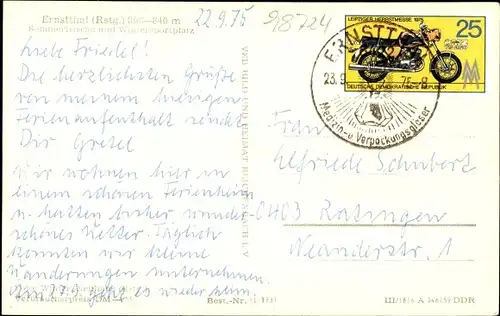 Ernstthal (Rstg.) 800—840 m
Sommerfrische und Wintersportplatz
22.9.75
98724
Liebe Friedel!
Die herzlichsten Grüße
von meinem hiesigen
Ferienaufenthalt sendet
Dir Gretel
Wir wohnen hier in
einem schönen Ferienheim
u. hatten bisher wunder-
schönes Wetter. Täglich
konnten wir kleine
Wanderungen unternehmen.
Am 27.9. geht es wieder heim.
Best.-Nr.
LEIPZIGER HERBSTMESSE 1975
25
DEUTSCHE DEMOKRATISCHE REPUBLIK
MM
ERNSTTHAL
23.9. 75-8
Medizin-u Verpackungsgläser
Frau
Elfriede Schubert
0403 Ratingen
Neanderstr. 1
III/18/6 A DDR